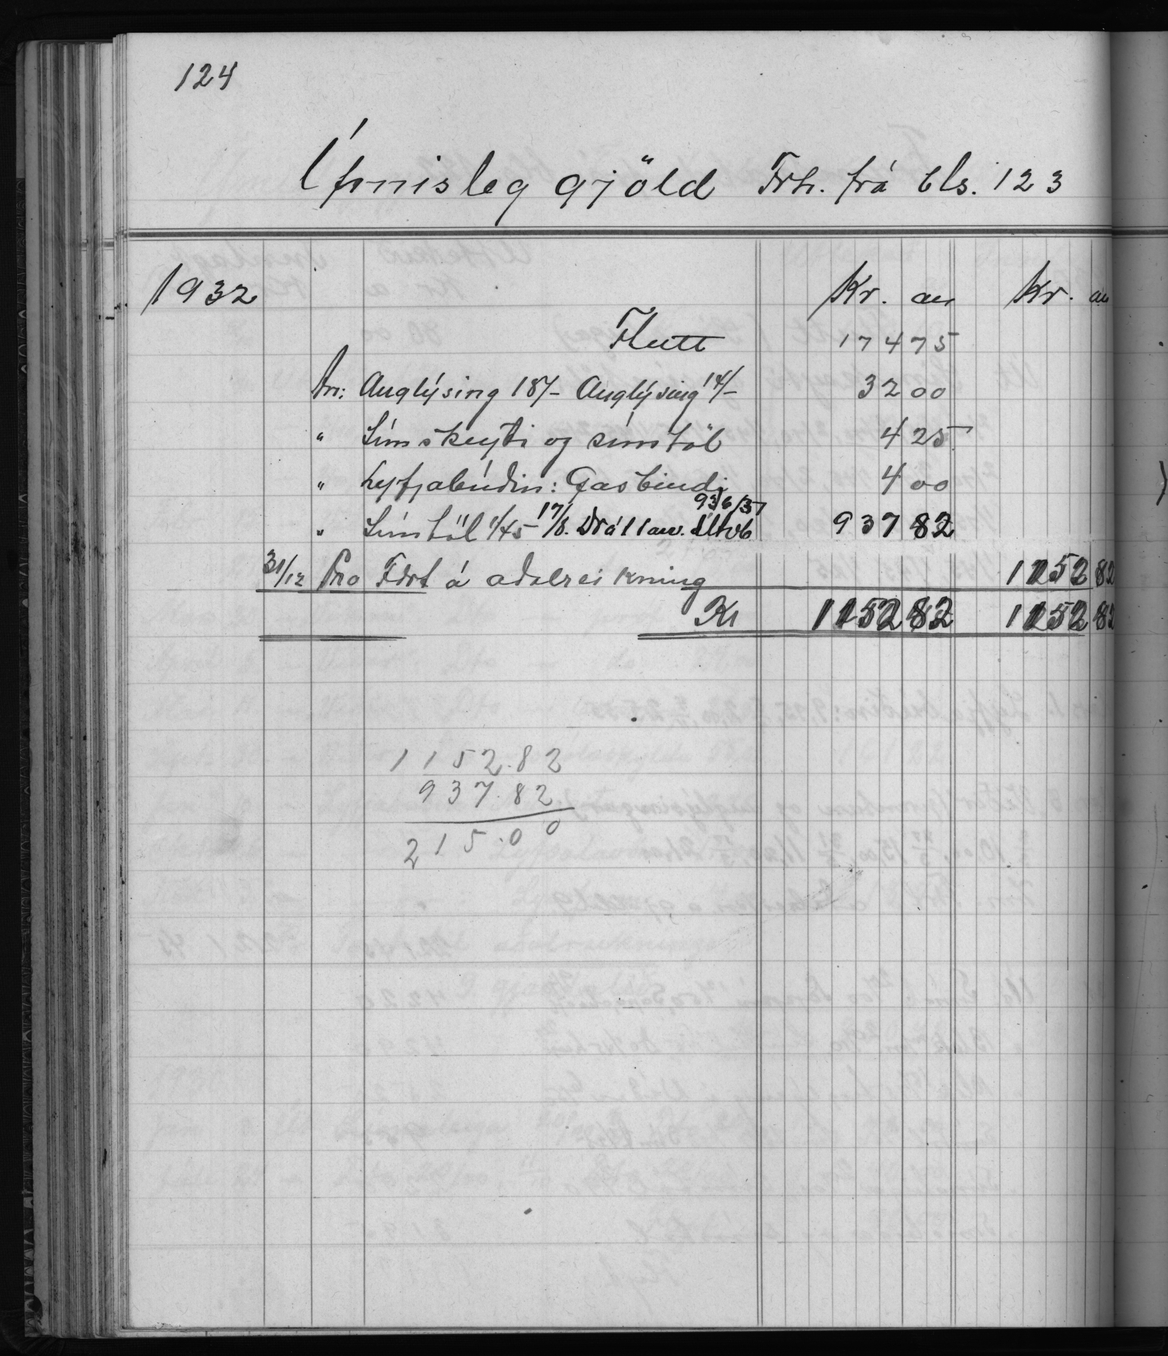 124
Ýmisleg gjöld Frh. frá bls. 123
1932 Kr. au Kr. au
Flutt 174 75
Pr: Auglýsing 18/- Auglýsing 14/- 32 00
" Símskeyti og símtöl 4 25
" Lyfjabúðin: Gasbindi 4 00
" Símtöl 1/45 - 17/8. 936/37 937 82
31/12 Pro Fært á aðalreikning 1152 82
Kr 1152 82 1152 82
1152.82
937.82
215.00